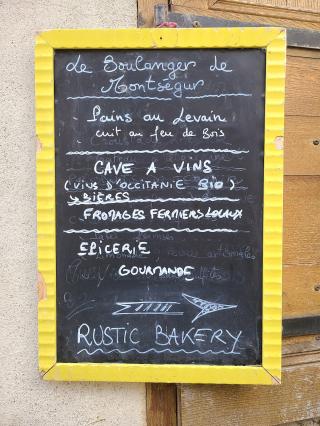 Le Boulanger de
Montségur
Pains au Levain
cuit au feu de Bois
CAVE A VINS
(VINS D'OCCITANIE BIO)
BIÈRES
FROMAGES FERMIERS LOCAUX
EPICERIE
GOURMANDE
RUSTIC BAKERY